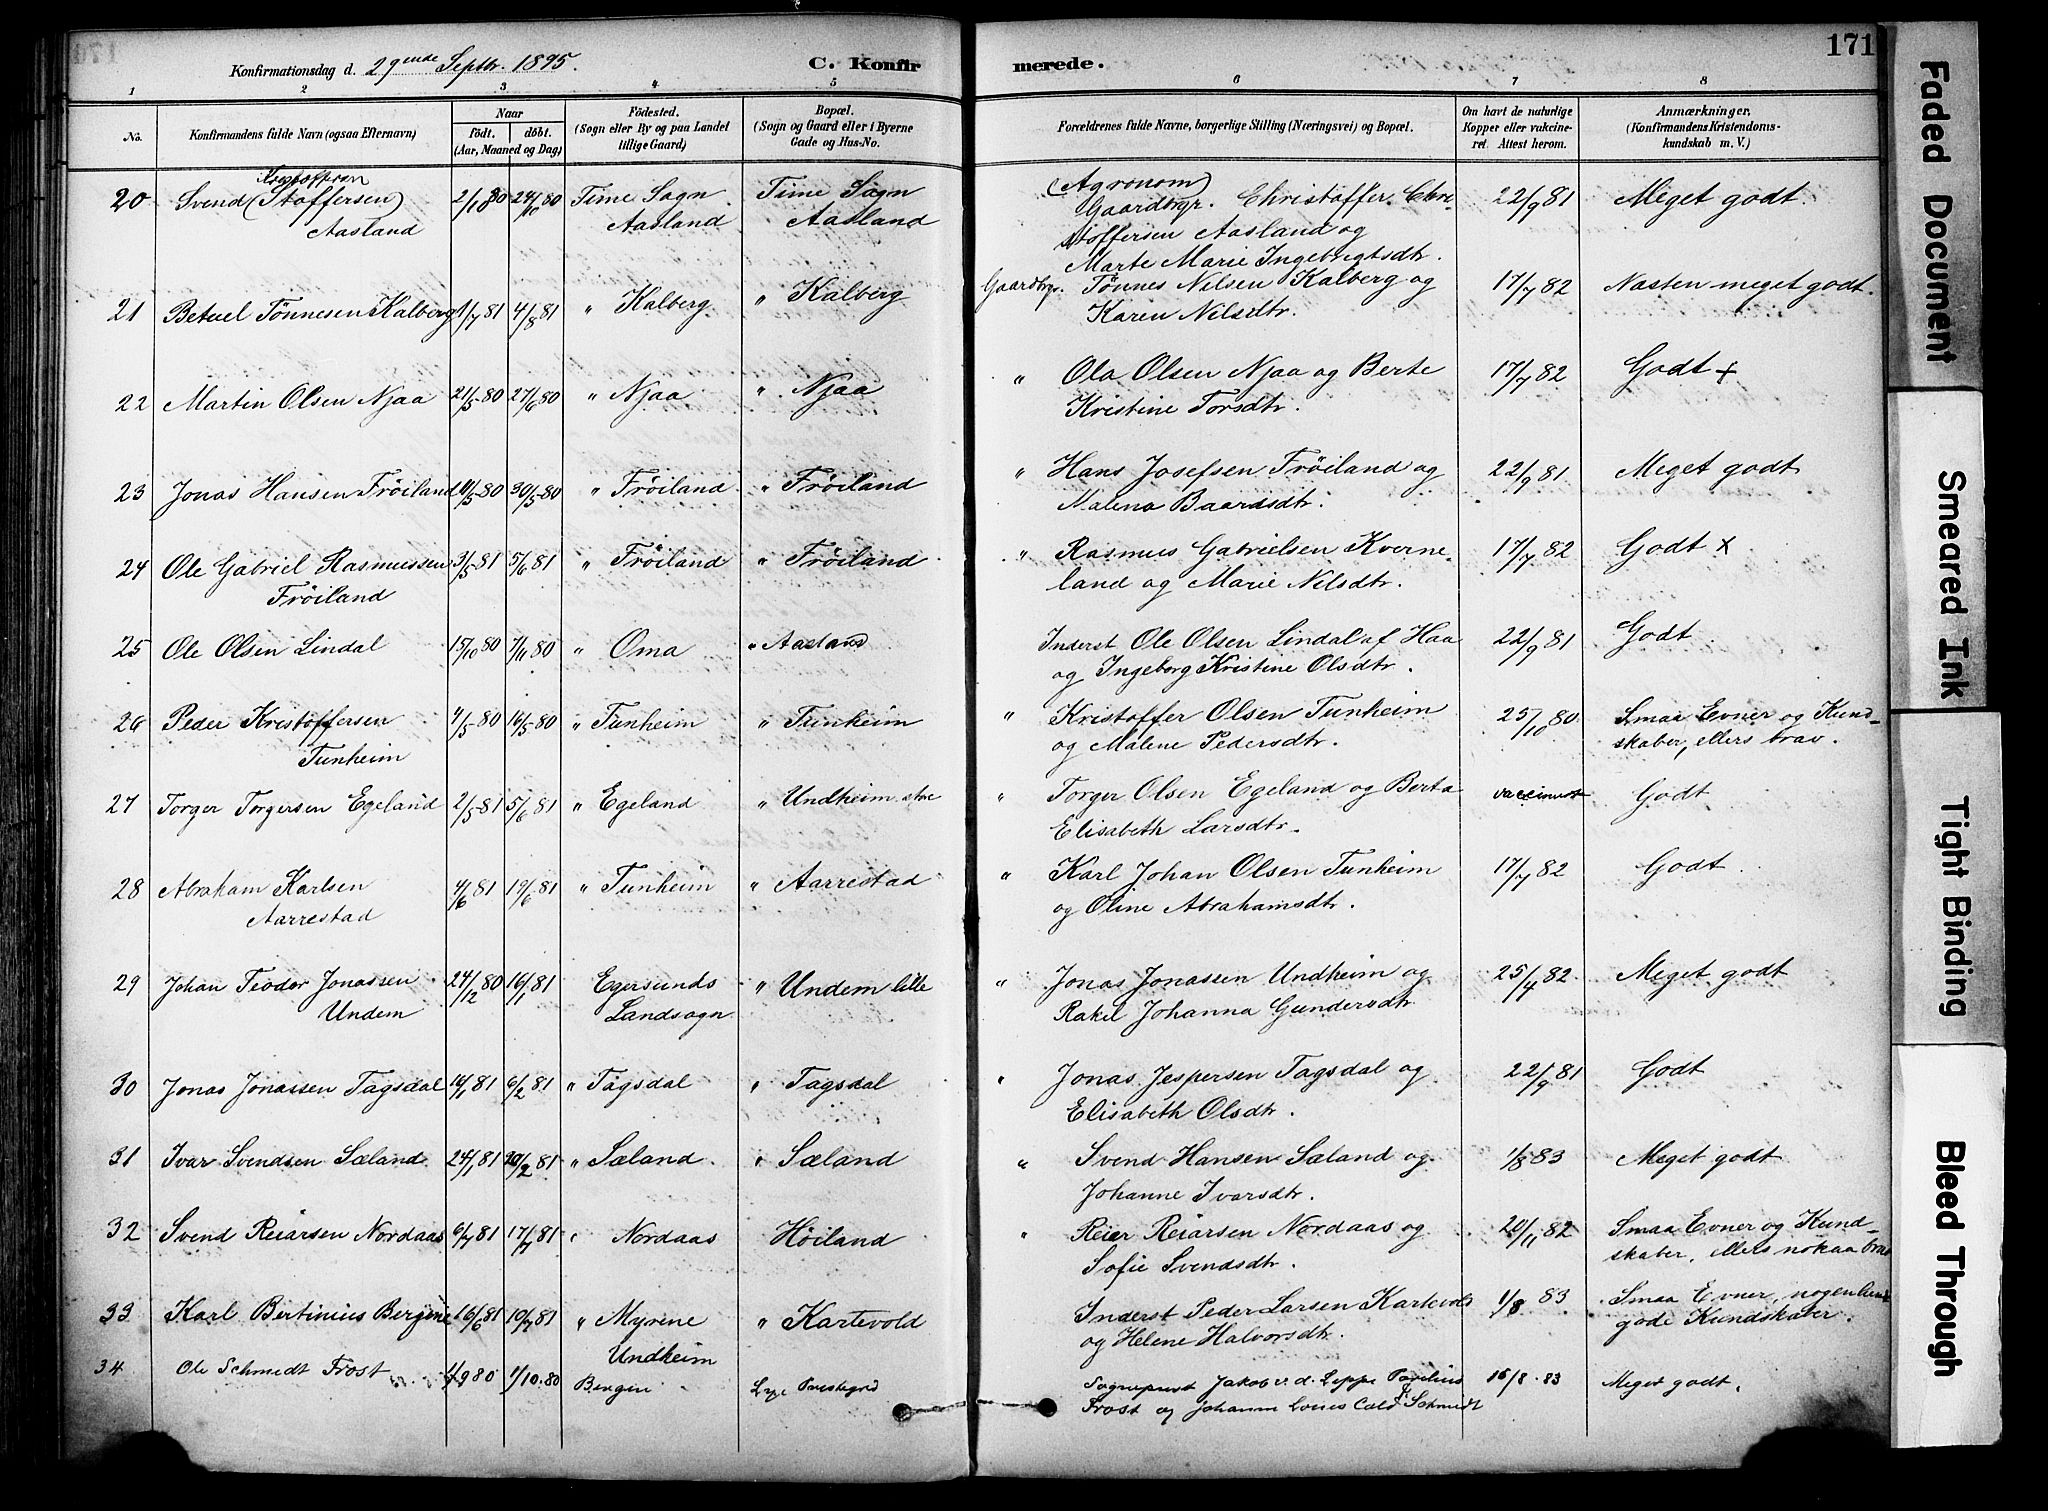 171
Konfirmationsdag d. 29ende Septbr. 1895. C. Konfirmerede.
1 2 3 4 5 6 7 8
No. Konfirmandens fulde Navn (ogsaa Efternavn) Naar født. døbt. (Aar, Maaned og Dag) Fødested. (Sogn eller By og paa Landet tillige Gaard) Bopæl. (Sogn og Gaard eller i Byerne Gade og Hus-No. Forældrenes fulde Navne, borgerlige Stilling (Næringsvei) og Bopæl. Om havt de naturlige Kopper eller vakcineret. Attest herom. Anmærkninger, (Konfirmandens Kristendomskundskab m. V.)
20 Svend (Stoffersen) Kristoffersen 2/10 80 24/10 80 Time Sogn Time Sogn (Agronom) Gaardbrgr. Christoffer Chri- 22/9 81 Meget godt.
Aasland Aasland Aasland stoffersen Aasland og
Marte Marie Ingebrigtsdtr.
21 Betuel Tönnesen Kalberg 1/7 81 4/8 81 " Kalberg " Kalberg Gaardbgr. Tönnes Nilsen Kalberg og 17/7 82 Næsten meget godt.
Karen Nilsdtr.
22 Martin Olsen Njaa 21/5 80 27/6 80 " Njaa " Njaa " Ola Olsen Njaa og Berte 17/7 82 Godt +
Kristine Torsdtr.
23 Jonas Hansen Fröiland 11/5 80 30/5 80 " Fröiland " Fröiland " Hans Josefsen Fröiland og 22/9 81 Meget godt
Malena Baardsdtr.
24 Ole Gabriel Rasmussen 3/5 81 5/6 81 " Fröiland " Fröiland " Rasmus Gabrielsen Kverne- 17/7 82 Godt x
Fröiland land og Marie Nilsdtr.
25 Ole Olsen Lindal 15/10 80 7/11 80 " Oma " Aasland Inderst Ole Olsen Lindal af Haa 22/9 81 Godt.
og Ingeborg Kristine Olsdtr.
26 Peder Kristoffersen 4/5 80 16/5 80 " Tunheim " Tunheim " Kristoffer Olsen Tunheim 25/10 80. Smaa Evner og Kund-
Tunheim og Malene Pedersdtr. skaber, ellers brav.
27 Torger Torgersen Egeland 2/5 81 5/6 81 " Egeland " Undheim store " Torger Olsen Egeland og Berta vaccineret Godt
Elisabeth Larsdtr.
28 Abraham Karlsen 4/6 81 19/6 81 " Tunheim " Aarrestad " Karl Johan Olsen Tunheim 17/7 82 Godt.
Aarrestad og Oline Abrahamsdtr.
29 Johan Teodor Jonassen 24/12 80 16/1 81 Egersunds " Undem lille " Jonas Jonassen Undheim og 25/4 82. Meget godt
Undem Landsogn Rakel Johanna Gundersdtr
30 Jonas Jonassen Tagsdal 14/1 81 6/2 81 " Tagsdal " Tagsdal " Jonas Jespersen Tagsdal og 22/9 81 Godt
Elisabeth Olsdtr.
31 Ivar Svendsen Sæland. 24/1 81 20/2 81 " Sæland. " Sæland " Svend Hansen Sæland og 1/8 83 Meget godt
Johanne Ivarsdtr.
32 Svend Reiarsen Nordaas 6/7 81 17/7 81 " Nordaas Høiland " Reier Reiarsen Nordaas og 20/11 82 Smaa Evner og Kund-
Sofie Svendsdtr. skaber, ellers nokaa brav
33 Karl Bertinius Bergine 16/6 81 10/7 81 " Myrene " Kartevold Inderst Peder Larsen Kartevold 1/8 83. Smaa Evner, nogenlunde
Undheim og Helene Halvorsdtr. gode Kundskaber.
34 Ole Schmidt Frost 1/9 80 1/10 80 Bergen Lye Prestegrd Sogneprest Jakob v. d. Lippe 15/8 83 Meget godt.
Frost og Johanne Schmidt
Faded Document
Smeared Ink
Tight Binding
Bleed Through